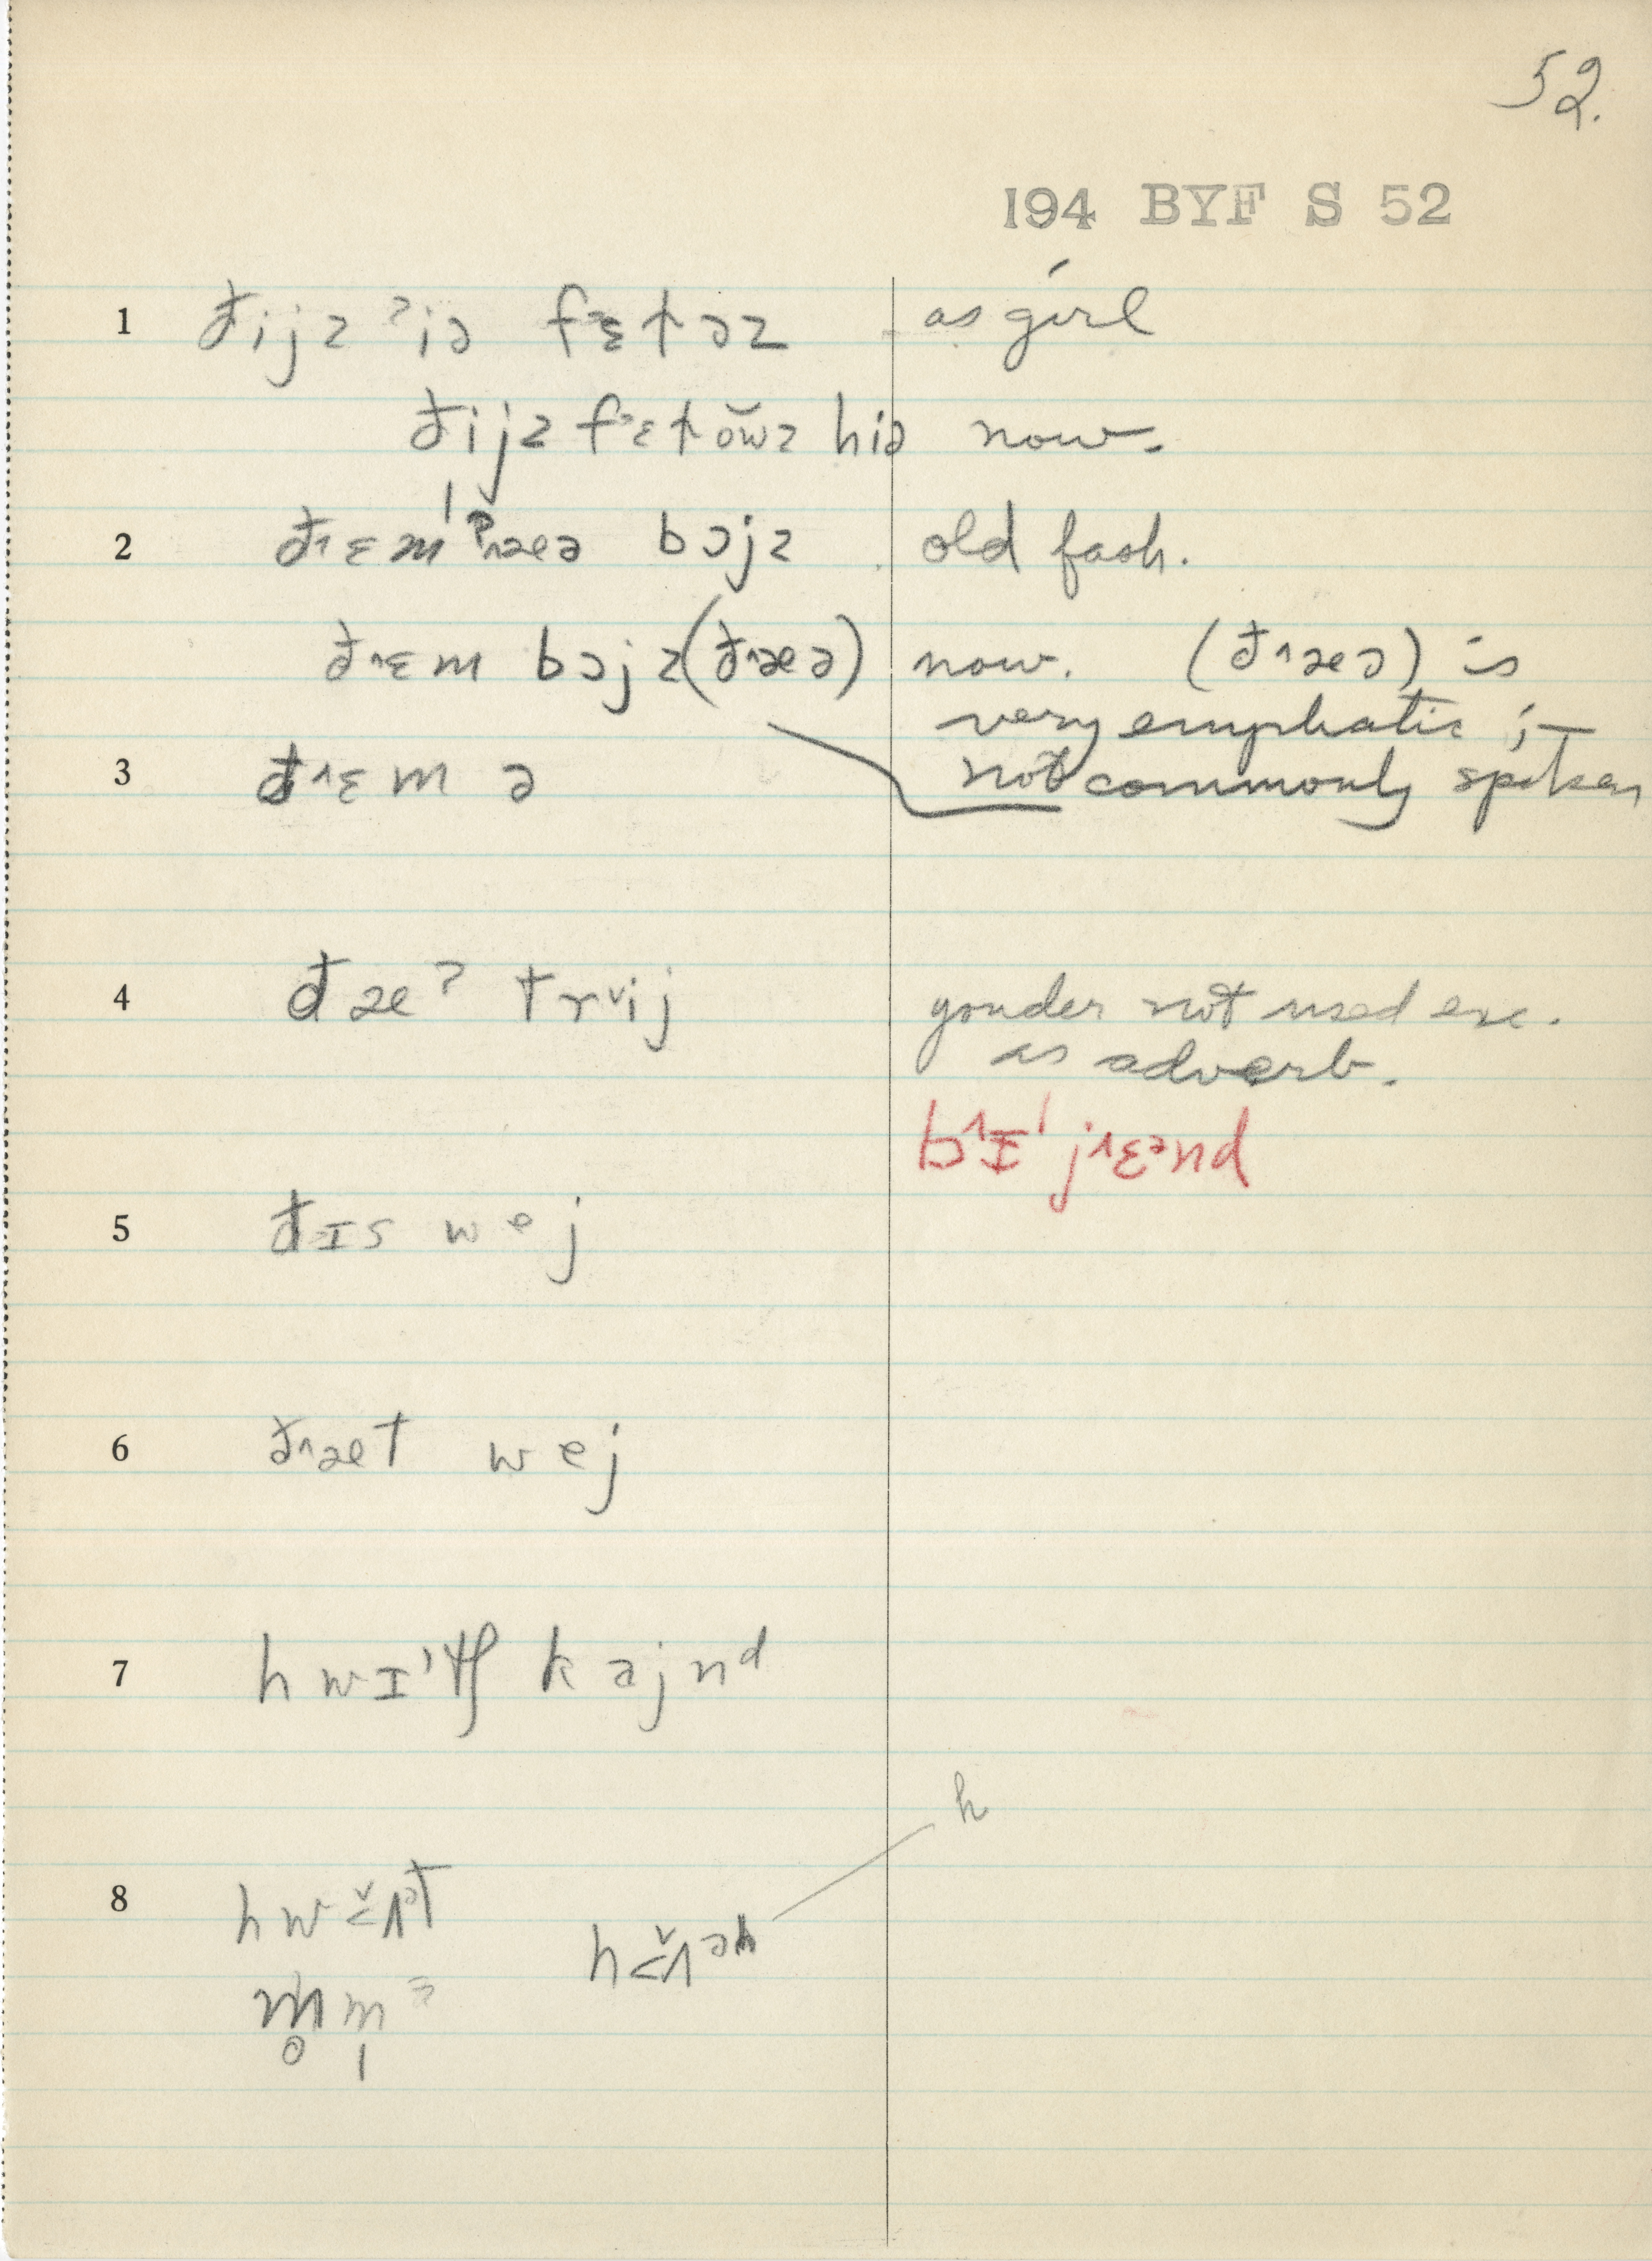 52.
194 BYF S 52
1 đijz ʔiə fɛtəz as girl
đijz fɛtŏwz hiə now.
2 đ˄ɛm ˈʔ˄æə bɔjz old fash.
đ˄ɛm bɔjz (đ˄æə) now. (đ˄æə) is
very emphatic ;—
3 đ˄ɛm ə not commonly spoken
4 đæʔ tr˅ij yonder not used exc.
as adverb.
b˄ɪˈj˄ɛᵊnd
5 đɪs wej
6 đ˄æt wej
7 hwɪˈtʃ kajnᵈ
h
8